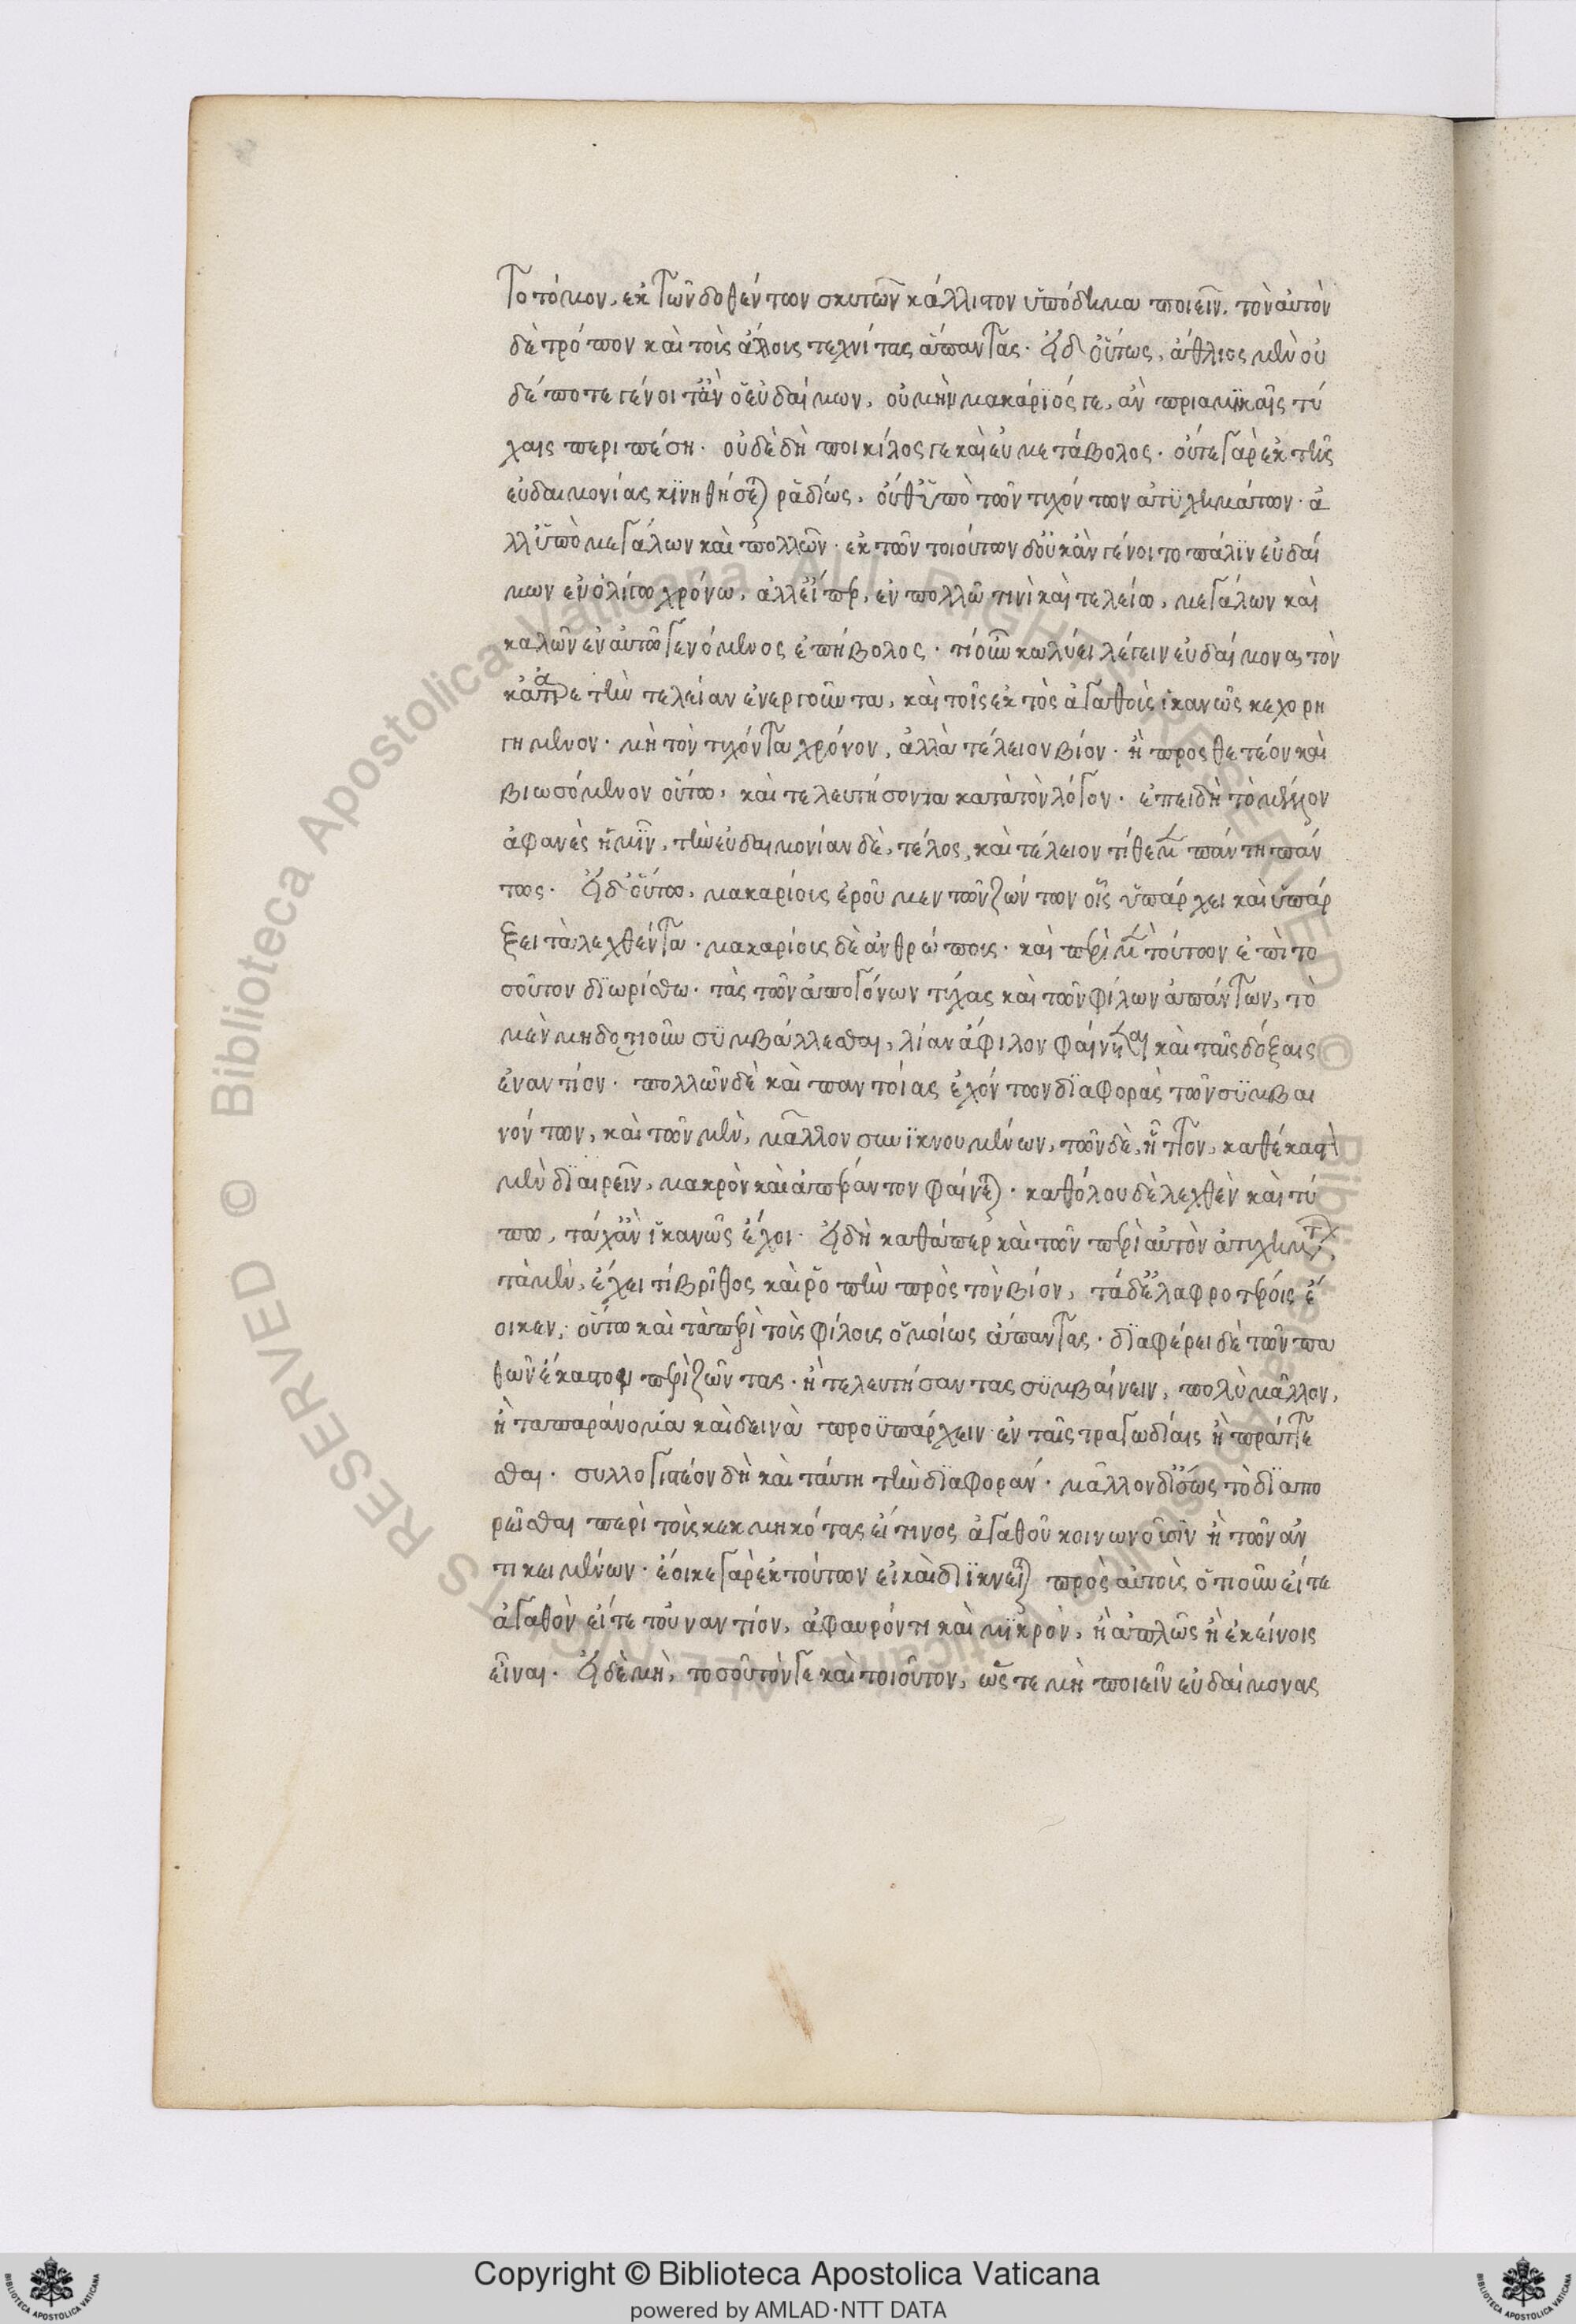 τοτόμον, ἐκ τῶν δοθέντων σκυτῶν κάλλιστον ὑπόδημα ποιεῖν. τὸν αὐτὸν
δὲ τρόπον καὶ τοὺς ἄλλους τεχνίτας ἅπαντας. εἰ δ' οὕτως, ἄθλιος μὲν οὐ
δέποτε γένοιτ' ἂν ὁ εὐδαίμων, οὐ μὴν μακάριός γε, ἂν πριαμικαῖς τύ
χαις περιπέση. οὐδὲ δὴ ποικίλος γε καὶ εὐμετάβολος. οὔτε γὰρ ἐκ τῆς
εὐδαιμονίας κινηθήσεται ῥαδίως, οὐθ' ὑπὸ τῶν τυχόντων ἀτυχημάτων. ἀ
λλ' ὑπὸ μεγάλων καὶ πολλῶν. ἐκ τῶν τοιούτων δ' οὐκ ἂν γένοιτο πάλιν εὐδαί
μων ἐν ὀλίγω χρόνω, ἀλλ' εἴπερ, ἐν πολλῶ τινὶ καὶ τελείω, μεγάλων καὶ
καλῶν ἐν αὐτῶ γενόμενος ἐπήβολος. τί οὖν κωλύει λέγειν εὐδαίμονας τὸν
κατ' ἀρετὴν τελείαν ἐνεργοῦντα, καὶ τοῖς ἐκτὸς ἀγαθοῖς ἱκανῶς κεχορη
γημένον. μὴ τὸν τυχόντα χρόνον, ἀλλὰ τέλειον βίον. ἢ προσθετέον καὶ
βιωσόμενον οὕτω, καὶ τελευτήσοντα κατὰ τὸν λόγον. ἐπειδὴ τὸ μέλλον
ἀφανὲς ἡμῖν, τὴν εὐδαιμονίαν δὲ, τέλος, καὶ τέλειον τίθεμεν πάντη πάν
τως. εἰ δ' οὕτω, μακαρίους ἐροῦμεν τῶν ζώντων οἷς ὑπάρχει καὶ ὑπάρ
ξει τὰ λεχθέντα. μακαρίους δὲ ἀνθρώπους. καὶ περὶ μὲν τούτων ἐπὶ το
σοῦτον διωρίσθω. τὰς τῶν ἀπογόνων τύχας καὶ τῶν φίλων ἁπάντων, τὸ
μὲν μηδοτιοῦν συμβάλλεσθαι, λίαν ἄφιλον φαίνεται καὶ ταῖς δόξαις
ἐναντίον. πολλῶν δὲ καὶ παντοίας ἐχόντων διαφορὰς τῶν συμβαι
νόντων, καὶ τῶν μὲν, μᾶλλον συνικνουμένων, τῶν δὲ, ἧττον, καθέκαστον
μὲν διαιρεῖν, μακρὸν καὶ ἀπέραντον φαίνεται. καθόλου δὲ λεχθὲν καὶ τύ
πω, τάχ' ἂν ἱκανῶς ἔχοι. εἰ δὴ καθάπερ καὶ τῶν περὶ αὐτὸν ἀτυχημάτων,
τὰ μὲν, ἔχει τί βρῖθος καὶ ῥοπὴν πρὸς τὸν βίον, τὰ δ' ἐλαφροτέροις ἔ
οικεν, οὕτω καὶ τὰ περὶ τοὺς φίλους ὁμοίως ἅπαντας. διαφέρει δὲ τῶν πα
θῶν ἕκαστον περὶ ζῶντας. ἢ τελευτήσαντας συμβαίνειν, πολὺ μᾶλλον,
ἢ τα παράνομα καὶ δεινὰ προϋπάρχειν ἐν ταῖς τραγωδίαις ἢ πράττε
σθαι. συλλογιστέον δὴ καὶ ταύτη τὴν διαφοράν. μᾶλλον δ' ἴσως τὸ διαπο
ρεῖσθαι περὶ τοὺς κεκμηκότας εἴ τινος ἀγαθοῦ κοινωνοῦσιν ἢ τῶν ἀν
τικειμένων. ἔοικε γὰρ ἐκ τούτων εἰ καὶ διικνεῖται πρὸς αὐτοὺς ὁτιοῦν εἴτε
ἀγαθὸν εἴτε τοὐναντίον, ἀφαυρόν τι καὶ μικρὸν, ἢ ἁπλῶς ἢ ἐκείνοις
εἶναι. εἰ δὲ μὴ, τοσοῦτόν γε καὶ τοιοῦτον, ὥστε μὴ ποιεῖν εὐδαίμονας
Copyright © Biblioteca Apostolica Vaticana
powered by AMLAD·NTT DATA